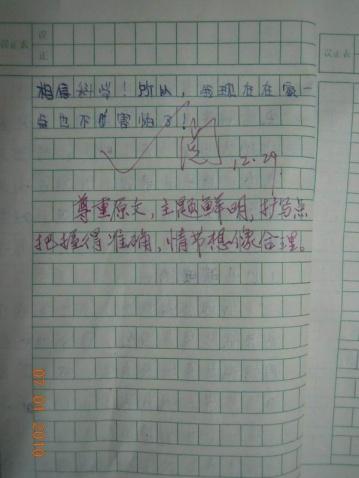 设
订正表 正
订正表
相信科学！所以，我现在在家一
点也不害怕了！
阅
12.29
尊重原文，主题鲜明，扩写点
把握得准确，情节想像合理。
07 01 2010